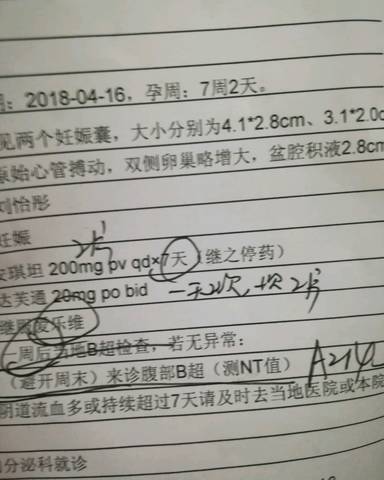 ：2018-04-16，孕周：7周2天。
见两个妊娠囊，大小分别为4.1*2.8cm、3.1*2.0c
原始心管搏动，双侧卵巢略增大，盆腔积液2.8cm
刘怡彤
妊娠
琪坦 200mg pv qd×7天（继之停药）
达芙通 20mg po bid 一天2次，一次2片
爱乐维
一周后当地B超检查，若无异常：
（避开周末）来诊腹部B超（测NT值）
阴道流血多或持续超过7天请及时去当地医院或本院
内分泌科就诊